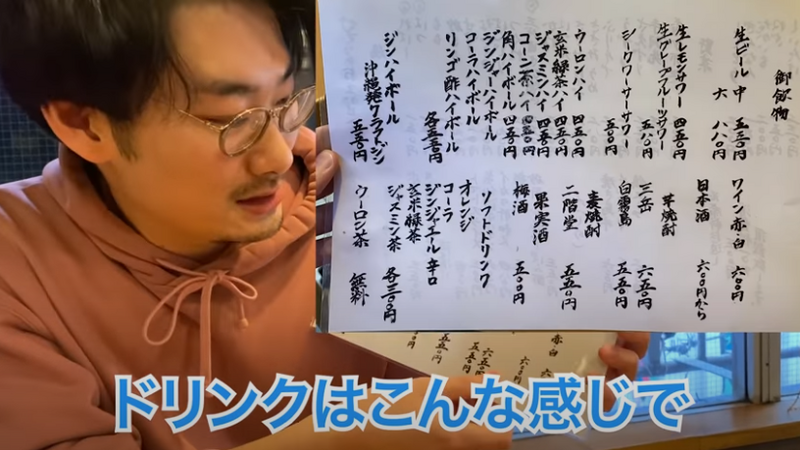 御飲物
生ビール 中 五五〇円
大 八八〇円
生レモンサワー 四五〇円
生グレープフルーツサワー 五五〇円
シークワーサーサワー 五〇〇円
ウーロンハイ 四五〇円
玄米緑茶ハイ 四五〇円
ジャスミンハイ 四五〇円
コーン茶ハイ 四五〇円
角ハイボール 四五〇円
ジンジャーハイボール
コーラハイボール
リンゴ酢ハイボール 各五五〇円
ジンハイボール
沖縄発クラフトジン 五五〇円
ワイン赤白 六〇〇円
日本酒 六〇〇円から
芋焼酎
三岳 六五〇円
白霧島 五五〇円
麦焼酎
二階堂 五五〇円
果実酒
梅酒 五〇〇円
ソフトドリンク
オレンジ
コーラ
ジンジャエール辛口
玄米緑茶
ジャスミン茶 各三〇〇円
ウーロン茶 無料
ドリンクはこんな感じで